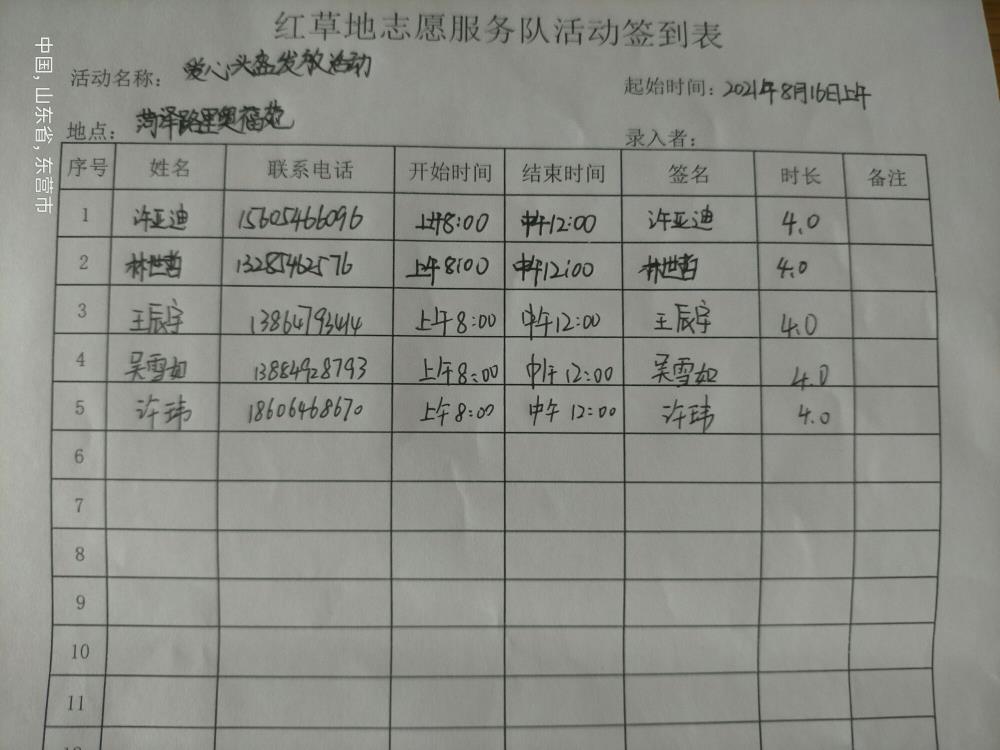 红草地志愿服务队活动签到表
活动名称：爱心头盔发放活动
起始时间：2021年8月16日上午
地点：菏泽路里奥福苑
录入者：
序号 姓名 联系电话 开始时间 结束时间 签名 时长 备注
1 许亚迪 15605466096 上午8:00 中午12:00 许亚迪 4.0
2 林世哲 13285462576 上午8:00 中午12:00 林世哲 4.0
3 王辰宇 13864793414 上午8:00 中午12:00 王辰宇 4.0
4 吴雪如 13884928793 上午8:00 中午12:00 吴雪如 4.0
5 许玮 18606468670 上午8:00 中午12:00 许玮 4.0
6
7
8
9
10
11
中国，山东省，东营市